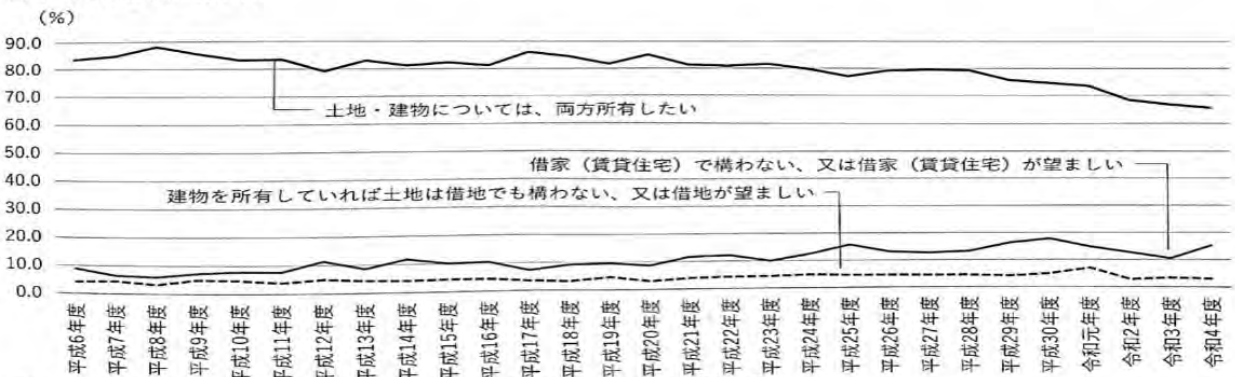 (%)
90.0
80.0
70.0
60.0
50.0
40.0
30.0
20.0
10.0
0.0
土地・建物については、両方所有したい
借家（賃貸住宅）で構わない、又は借家（賃貸住宅）が望ましい
建物を所有していれば土地は借地でも構わない、又は借地が望ましい
平成6年度
平成7年度
平成8年度
平成9年度
平成10年度
平成11年度
平成12年度
平成13年度
平成14年度
平成15年度
平成16年度
平成17年度
平成18年度
平成19年度
平成20年度
平成21年度
平成22年度
平成23年度
平成24年度
平成25年度
平成26年度
平成27年度
平成28年度
平成29年度
平成30年度
令和元年度
令和2年度
令和3年度
令和4年度